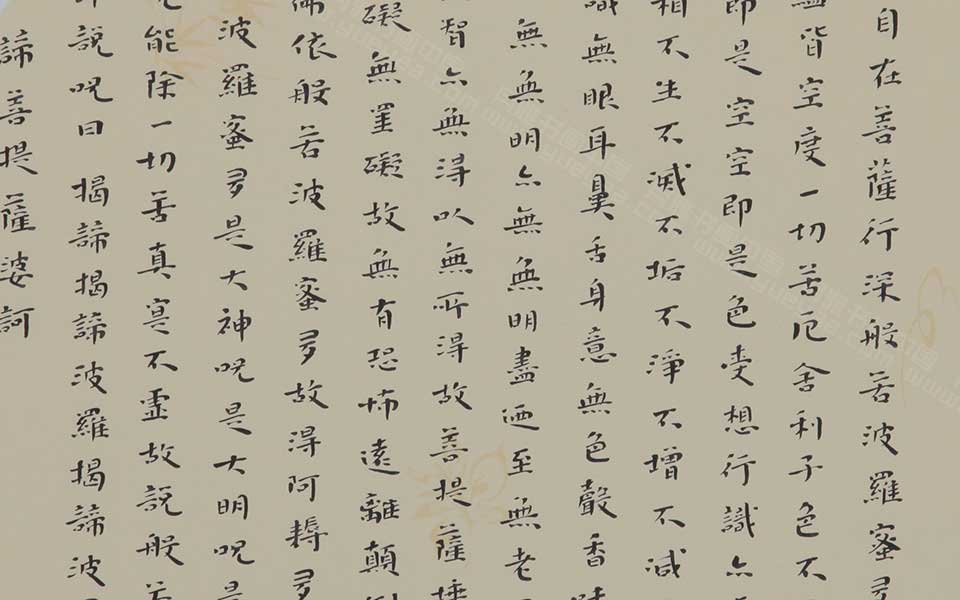 自在菩薩行深般若波羅蜜多
皆空度一切苦厄舍利子色不
即是空空即是色受想行識亦
相不生不滅不垢不淨不增不減
識無眼耳鼻舌身意無色聲香味
無無明亦無無明盡迺至無老
智亦無得以無所得故菩提薩埵
礙無罣礙故無有恐怖遠離顛倒
依般若波羅蜜多故得阿耨多
波羅蜜多是大神呪是大明呪是
能除一切苦真實不虛故說般若
說呪曰揭諦揭諦波羅揭諦波
諦菩提薩婆訶